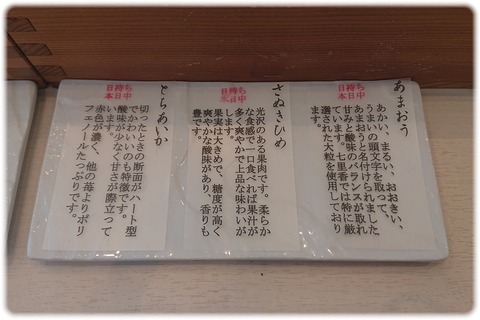 あまおう
日持ち
本日中
あかい、まるい、おおきい、
うまいの頭文字を取って、
あまおうと名付けられました
甘みと酸味のバランスが取れ
ています。七里香では特に厳
選された大粒を使用しており
ます。
さぬきひめ
日持ち
本日中
光沢のある果肉です。柔らか
な食感で一口食べれば果汁が
多く爽やかで上品な味わいが
します。
果実は大きめで、糖度が高く
爽やかな酸味があり、香りも
豊です。
とちあいか
日持ち
本日中
切ったときの断面がハート型
でかわいいのも特徴です。
酸味が少なく甘さが際立って
赤色が濃く、他の苺よりポリ
フェノールたっぷりです。